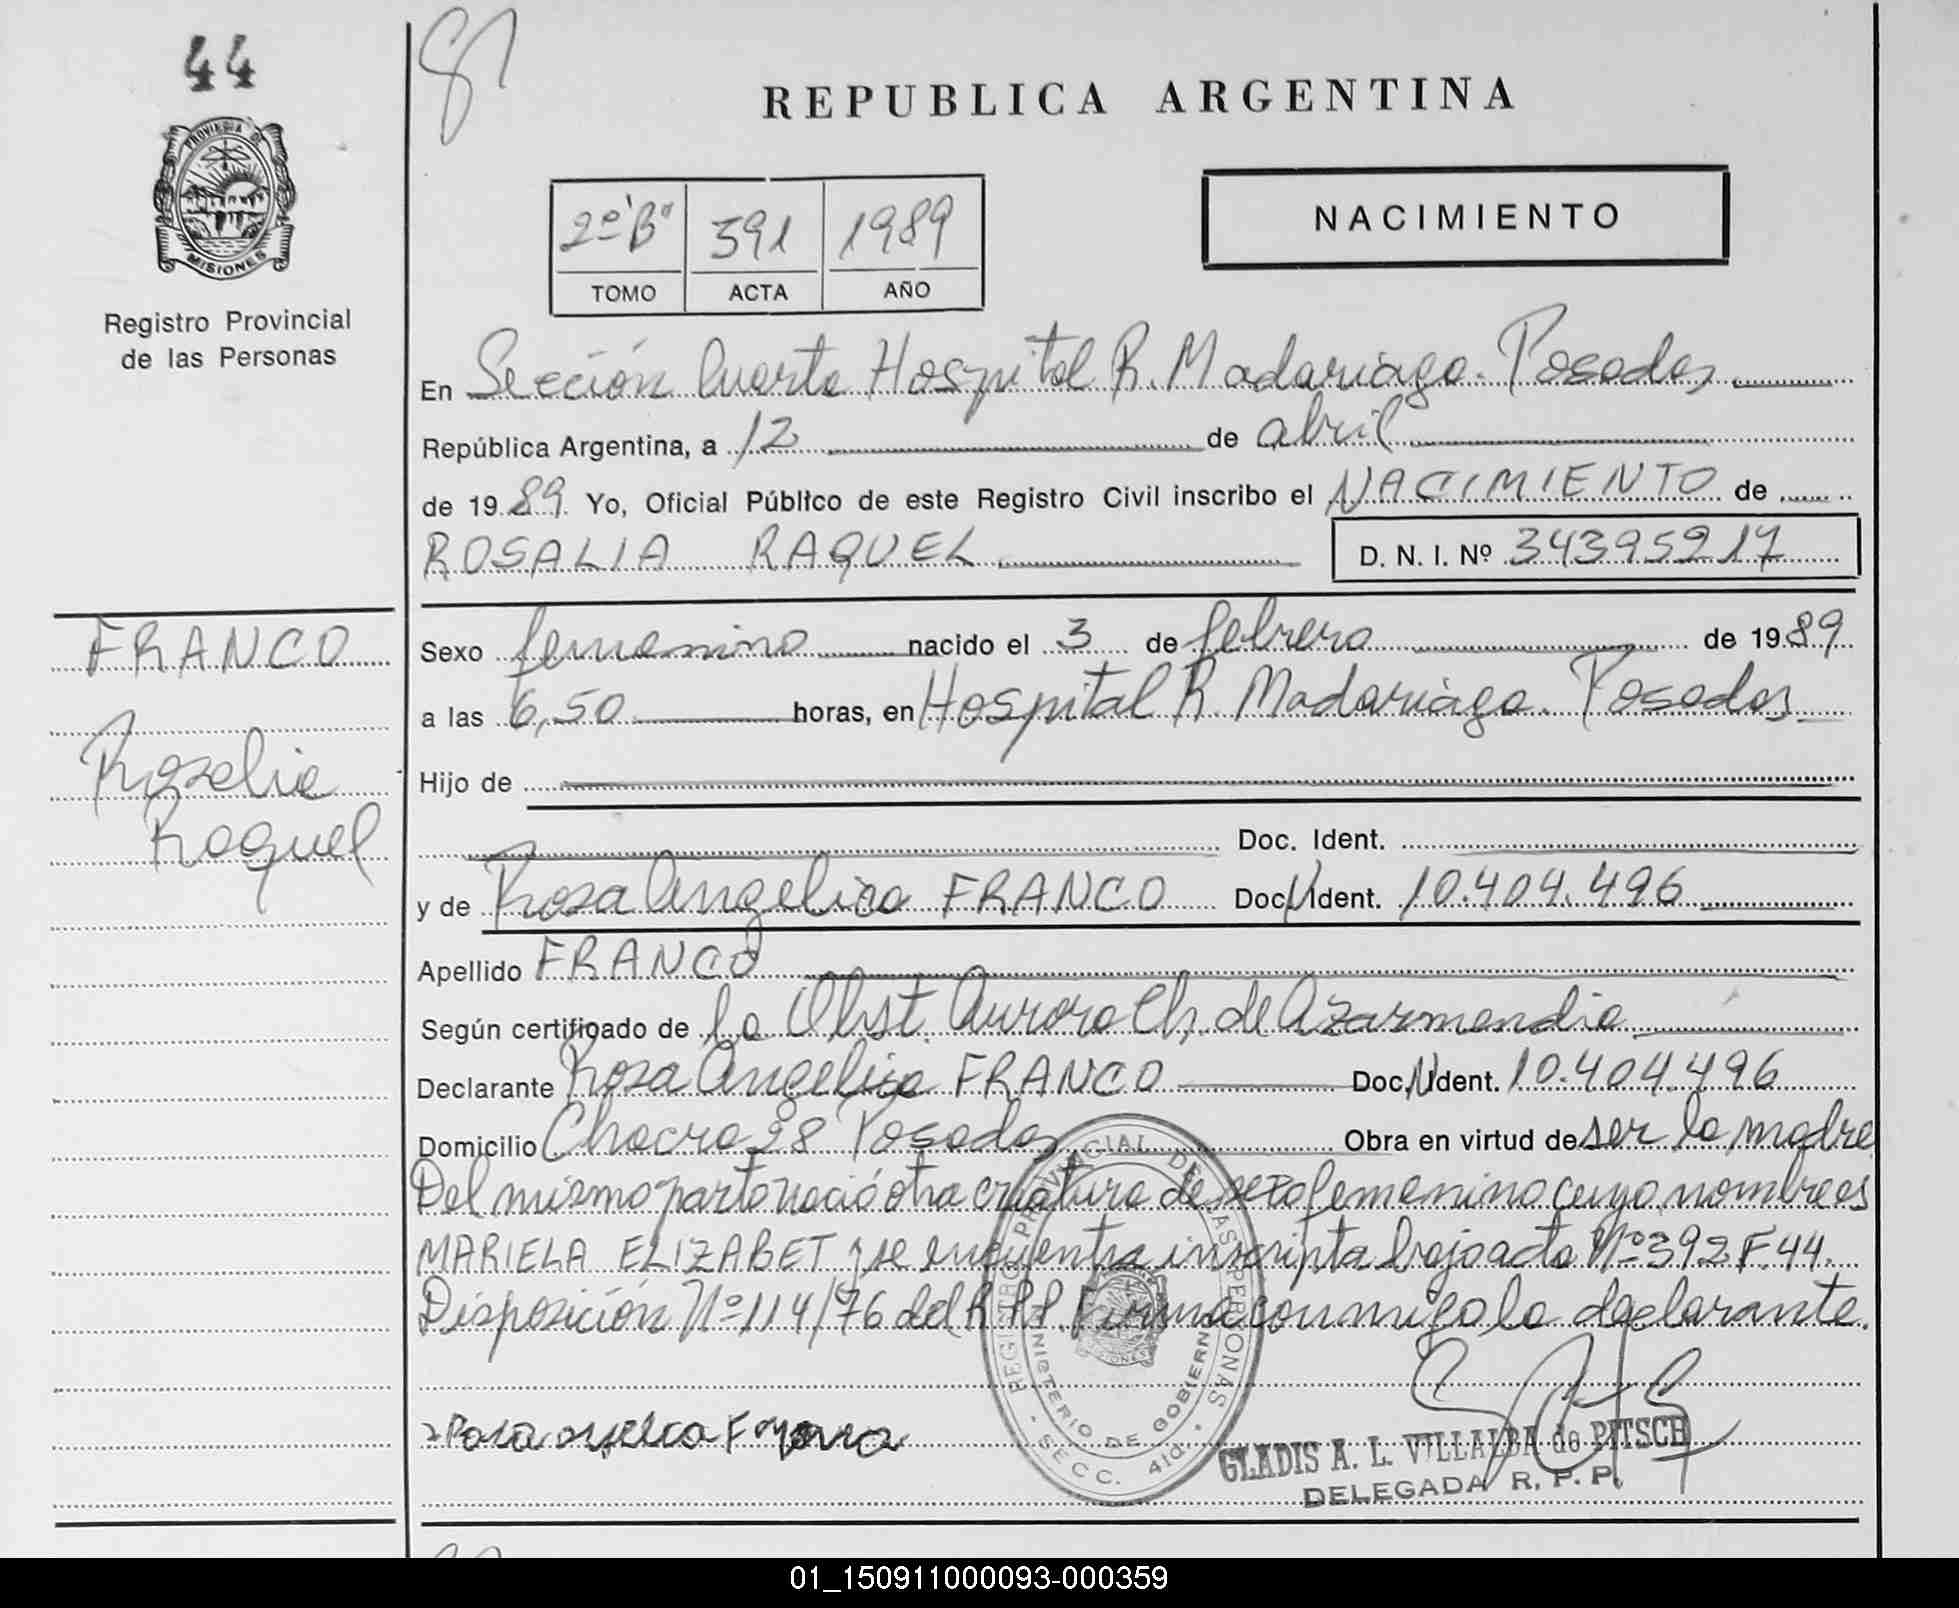 44
81
REPUBLICA ARGENTINA
PROVINCIA DE
MISIONES
Registro Provincial
de las Personas
NACIMIENTO
2º "B" 391 1989
TOMO ACTA AÑO
En Sección Cuarta Hospital R. Madariaga. Posadas
República Argentina, a 12 de abril
de 1989 Yo, Oficial Público de este Registro Civil inscribo el NACIMIENTO de
ROSALIA RAQUEL D. N. I. Nº 34395917
FRANCO
Rosalia
Raquel
Sexo femenino nacido el 3 de febrero de 1989
a las 6,50 horas, en Hospital R. Madariaga. Posadas
Hijo de
Doc. Ident.
y de Rosa Angelica FRANCO Doc. N Ident. 10.404.496
Apellido FRANCO
Según certificado de la Obst. Aurora Ch. de Azarmendia
Declarante Rosa Angelica FRANCO Doc. N Ident. 10.404.496
Domicilio Chacra 28 Posadas Obra en virtud de ser la madre
Del mismo parto nació otra criatura de sexo femenino cuyo nombre es
MARIELA ELIZABET y se encuentra inscripta bajo acta Nº 392 F. 44.
Disposición Nº 114/76 del R.P.P. Firma conmigo la declarante.
REGISTRO PROVINCIAL DE LAS PERSONAS
MINISTERIO DE GOBIERNO
SECC. 4ta.
GLADIS A. L. VILLALBA de PITSCH
DELEGADA R. P. P.
01_150911000093-000359